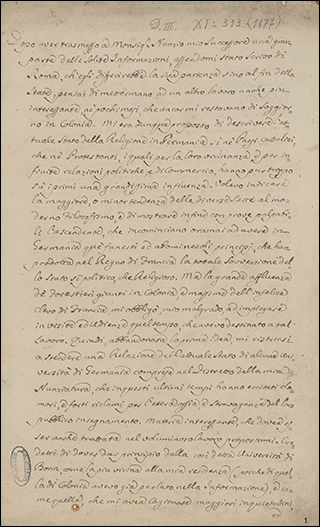 D. III. XI: 313 (1477)
Dopo aver trasmesso à Monsigr Nunzio mio Successore una gran
parte delle solite Informazioni, essendomi stato scritto di
Roma, ch'egli differirebbe la sua partenza sino al fin della
State, pensai di mettermi ad un altro lavoro anche più
interessante ne' pochi mesi che ancor mi restavano di Soggior-
no in Colonia. Mi era dunque proposto di descrivere l'at-
tuale Stato della Religione in Germania sì ne' Paesi cattolici,
che ne' Protestanti, i quali per la loro vicinanza, e per in-
finite relazioni politiche, e di commercio, hanno pur troppo
su i primi una grandissima influenza. Volevo indicare
la maggiore, o minor tendenza delle diverse Sette al mo-
derno Filosofismo, e dimostrare infine con prove palpabi-
li l'ascendente, che incominciano oramai ad avere in
Germania que' funesti ed abominevoli principj, che han
prodotto nel Regno di Francia la totale sovversione del-
lo Stato sì politico, che Religioso. Ma la grande affluenza
de' Forestieri giunti in Colonia, e massime dell'infelice
Clero di Francia mi obbligò, mio malgrado, ad impiegare
in visite ed udienze quel tempo, che avevo destinato a tal
lavoro. Quindi, abbandonata la prima idea, mi ristrinsi
a stendere una Relazione dell'attuale Stato di alcune Uni-
versità di Germania comprese nel distretto della mia
Nunziatura, che in questi ultimi tempi hanno eccitati cla-
mori, e forti richiami per l'eterodossia, e stravaganza del loro
pubblico insegnamento. Materia interessante, che dovea es-
ser anche trattata nel voluminoso lavoro propostomi. Cre-
detti di dover dar principio dalla così detta Università di
Bonn, come la più vicina alla mia residenza (poiché di quel-
la di Colonia avevo già parlato nella Informazione), e co-
me quella, che mi avea cagionate maggiori inquietudini,
1